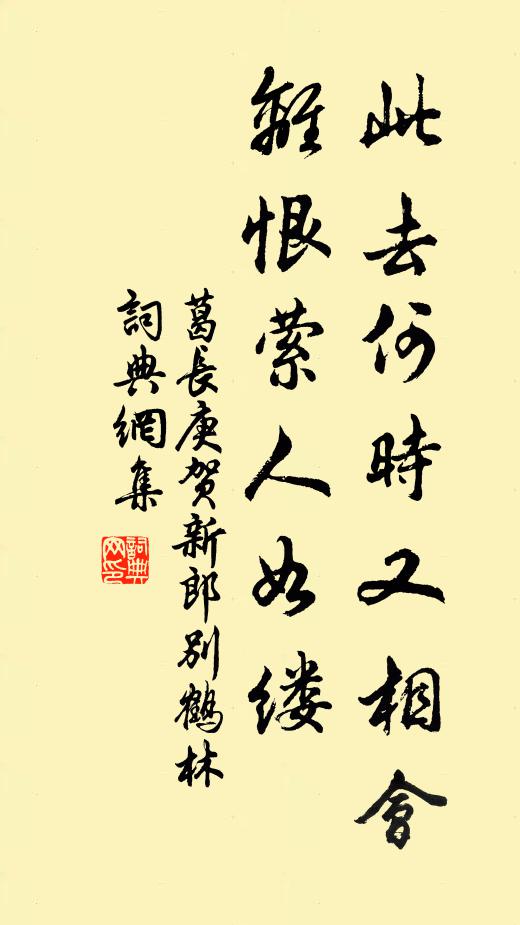 此去何時又相會
離恨萦人如缕
葛長庚贺新郎别鶴林
詞典網集
詞典網印